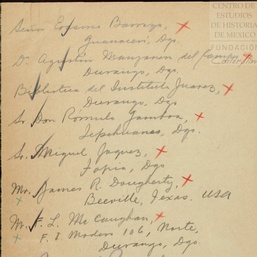 CENTRO DE
ESTUDIOS
DE HISTORIA
DE MEXICO
FUNDACIÓN
Señor Barraza,
Guanaceví, Dgo.
Dr. Agustín Manzanera del Campo
Durango, Dgo.
Biblioteca del Instituto Juarez,
Durango, Dgo.
Sr. Don Romulo Gamboa,
Tepehuanes, Dgo.
Sr. Miguel Jaquez,
Topia, Dgo.
Mr. James R. Dougherty,
Beeville, Texas. USA
Mr. F. L. McCaughan,
F. I. Madero 106, Norte,
Durango, Dgo.